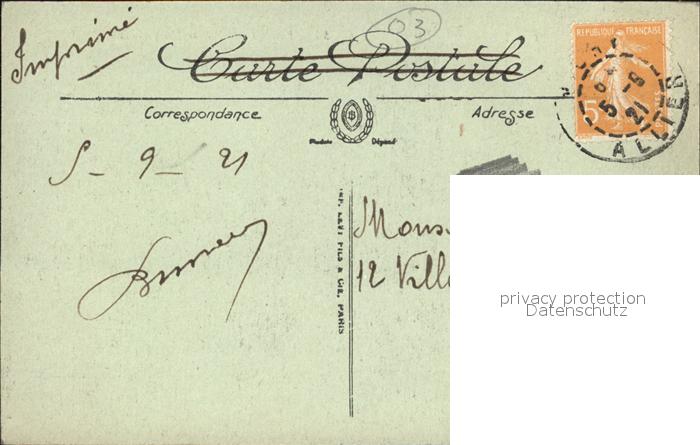 Imprimé
03
Carte Postale
Correspondance
Adresse
REPUBLIQUE FRANÇAISE
5
5 -9
21
ALLIER
Modèle Déposé
5 - 9 - 21
IMP. LEVY FILS & CIE, PARIS
Mons
12 Ville
privacy protection
Datenschutz